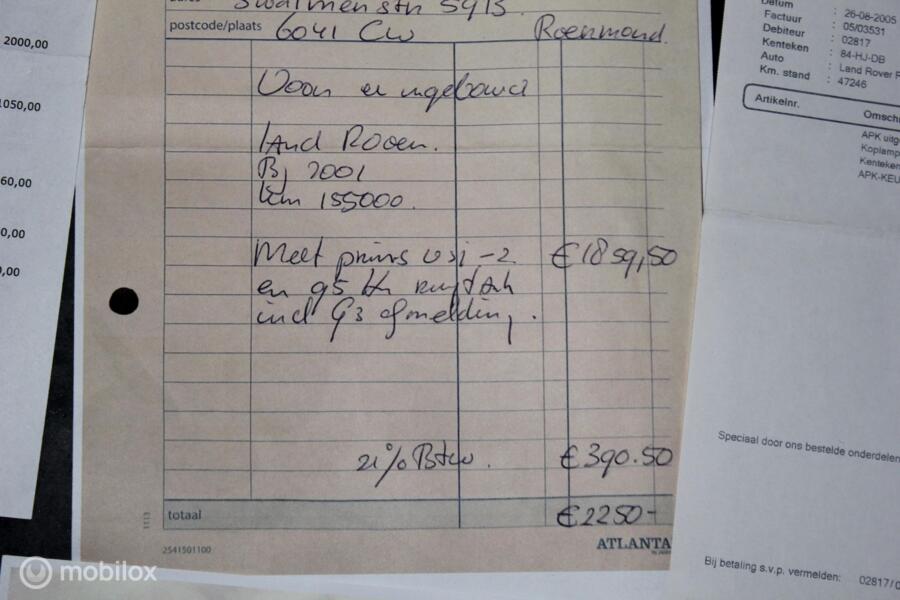 2000,00
1050,00
60,00
0,00
0,00
Swalmenstr 591B
postcode/plaats 6041 CW Roermond.
Voor u ingebouwd
Land Rover.
Bj 2001
Km 155000.
Met prins vsi-2 € 1859,50
en 95 ltr
incl G3 afmelding.
21% Btw. € 390.50
totaal € 2250-
2541501100
ATLANTA
1113
Datum : 26-08-2005
Factuur : 05/03531
Debiteur : 02817
Kenteken : 84-HJ-DB
Auto : Land Rover F
Km. stand : 47246
Artikelnr. Omschri
APK uitg
Koplamp
Kenteken
APK-KEU
Speciaal door ons bestelde onderdelen
Bij betaling s.v.p. vermelden: 02817/0
mobilox